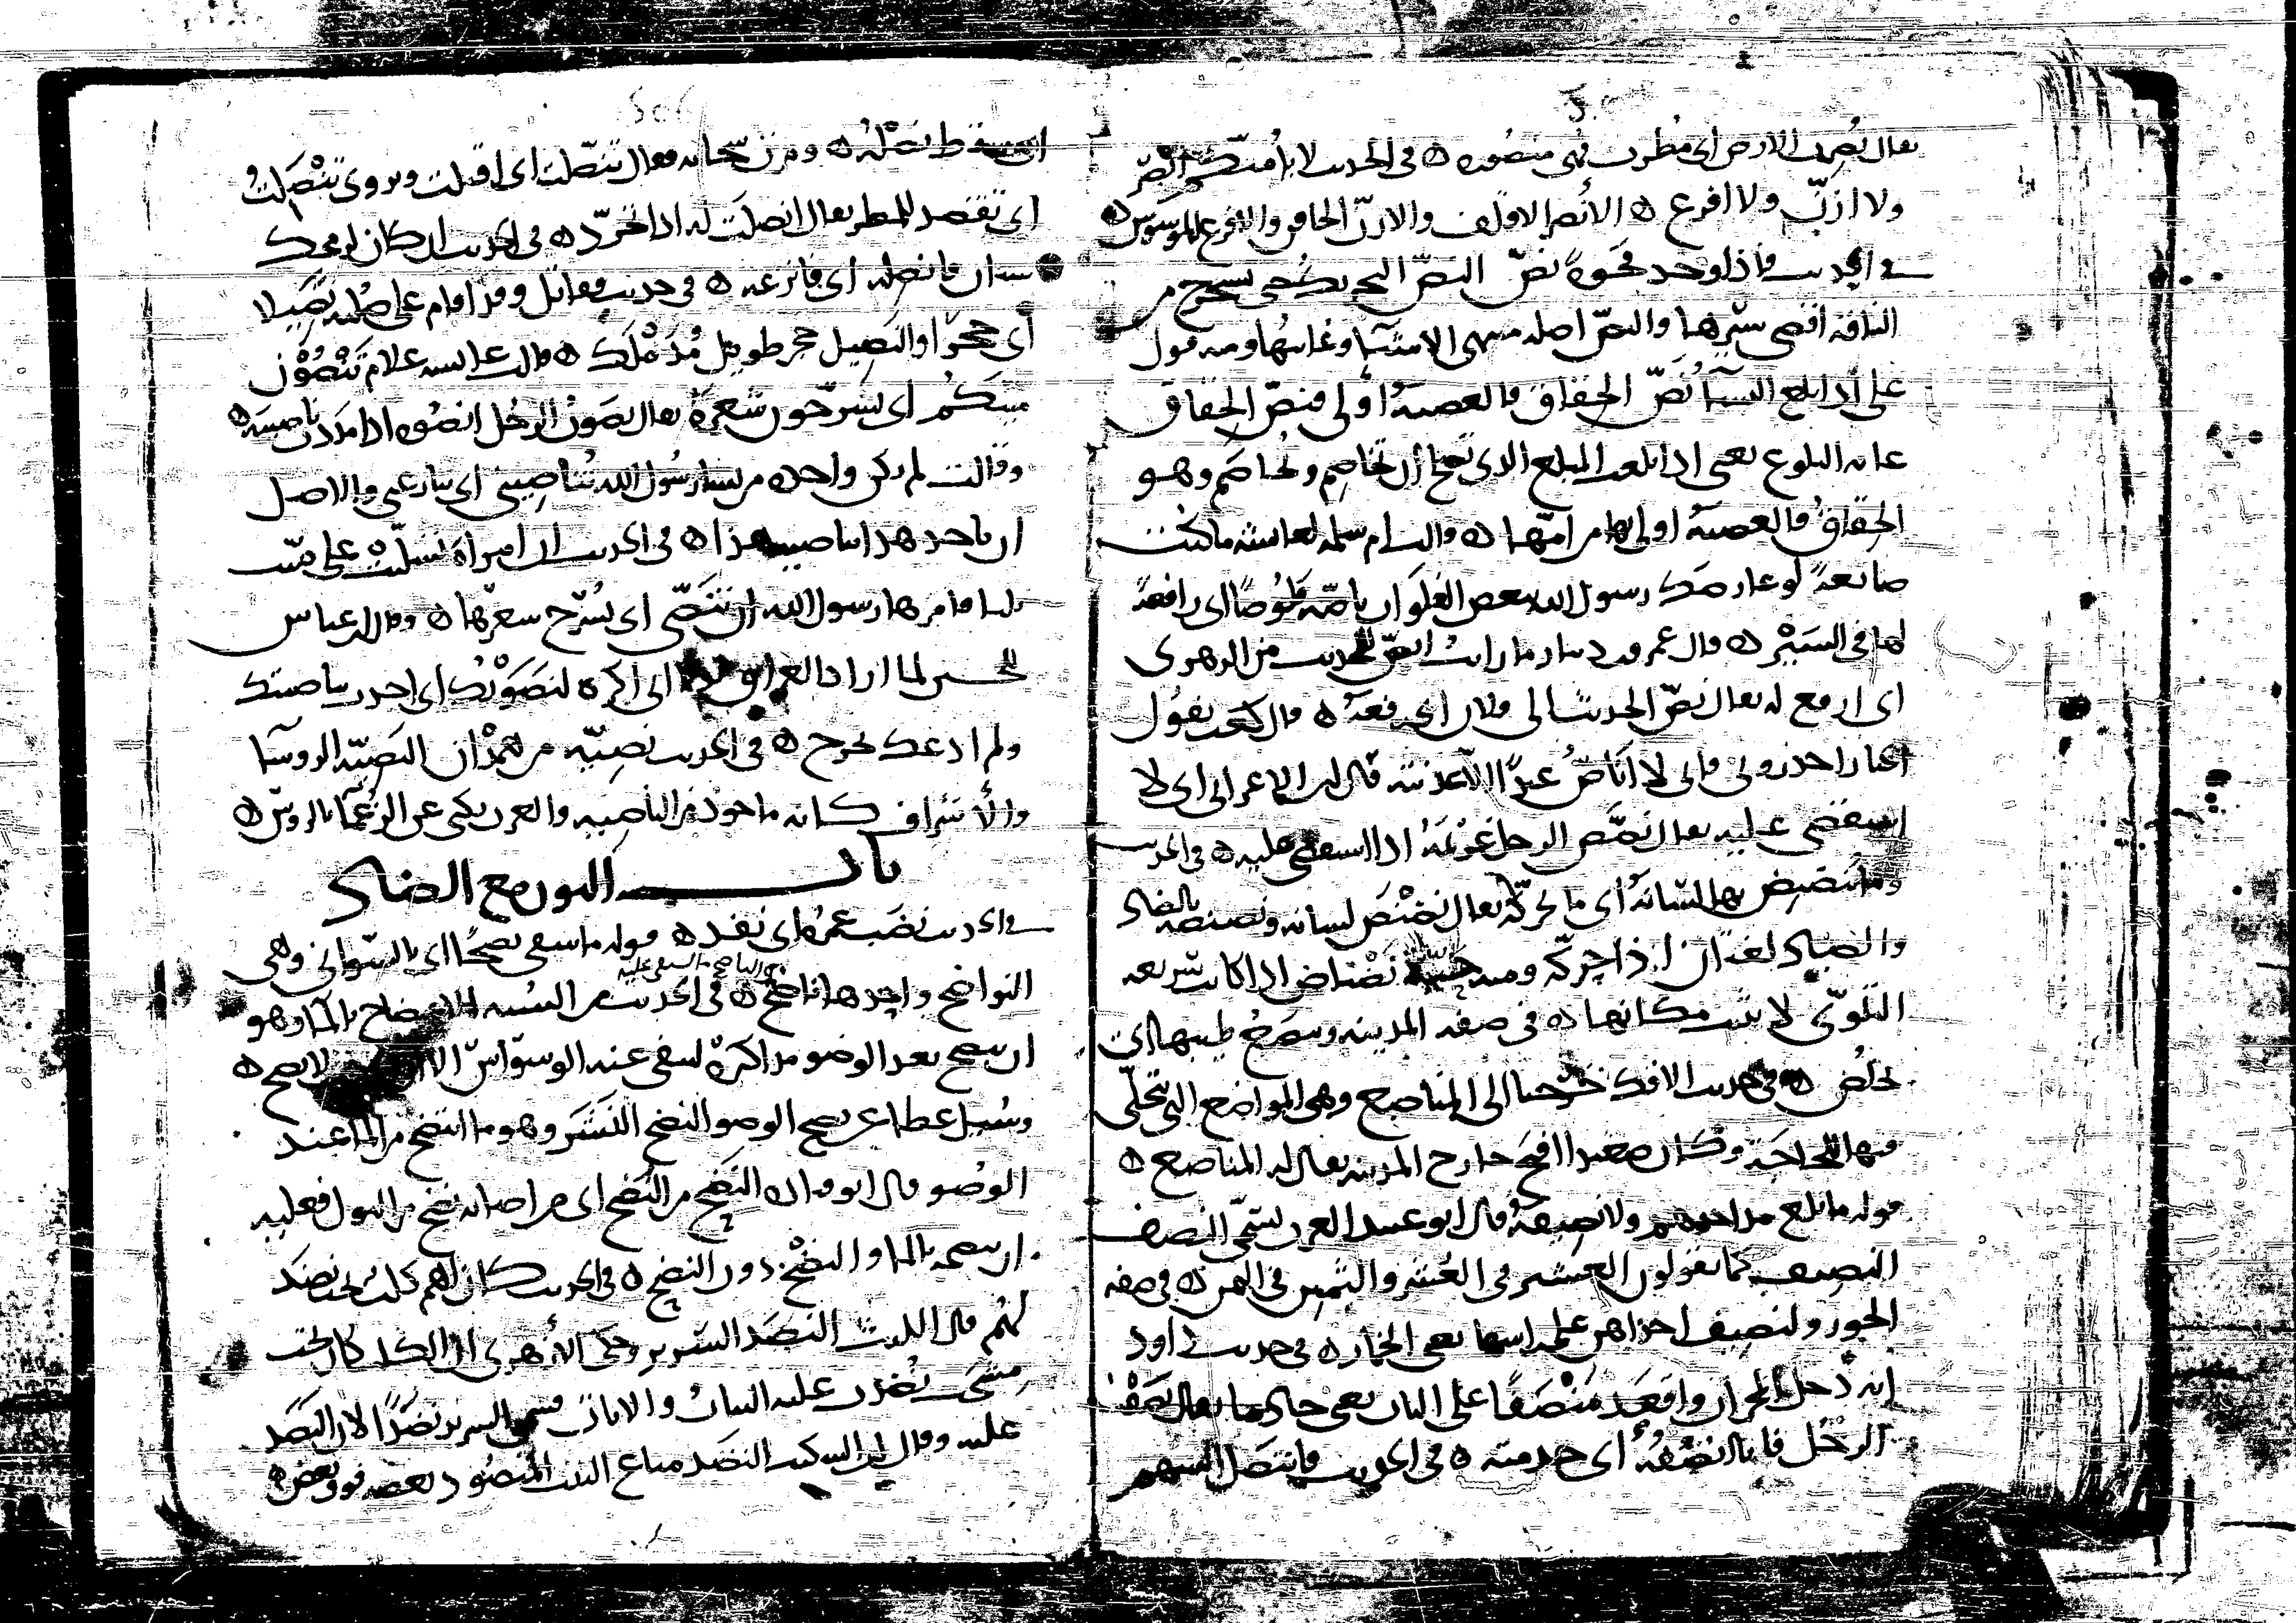 يقال نُصِرت الارض اى مُطرت فهى منصُوره ه فى الحديث لا يؤمنكم انصر
ولا ازنّ ولا افرع ه الانصر الاقلف والازنّ الحاقن والافرع الموسوس ه
فى الحديث فاذا وجد فجوة نصّ النصّ التحريك حتى تستخرج من
الناقة اقصى سيرها والنصّ اصله منتهى الاشياء وغايتها ومنه قول
على اذا بلغ النساء نَصّ الحقاق فالعصبة اولى فنصّ الحقاق
غايه البلوغ يعنى اذا بلغت المبلغ الذى يصلح ان تخاصم وتخاصَم وهو
الحقاقُ فالعصبةُ اولى بها من امّها ه وقالت ام سلمه لعايشه ما كنت
صانعةً لو عارضك رسول الله ببعض الفلوات ناصّة قلوصًا اى رافعةً
لها فى السَيْر ه وقال عمرو بن دينار ما رايت انصّ للحديث من الزهرى
اى ارفع له يقال نصّ الحديث الى فلان اى رفعَهُ ه قال كعب يقول
الجبار احذرونى فانى لا اُناصّ عبدًا الا عذبته قال ابن الاعرابى اى لا
استقصى عليه يقال نصّص الرجل غريمَهُ اذا استقصى عليه ه فى الحديث
وما ينصنص بها لسانه اى ما يحركه يقال نصنص لسانه ونضنضه بالضاد
والصاد لغتان اذا حركه ومنه حيّة نضناض اذا كانت سريعه
التلوّى لا يثبت مكانها ه فى صفه المدينه وينصع طيبها اى
يخلص ه فى حديث الافك خرجنا الى المناصع وهى المواضع التى يتخلّى
فيها للحاجة وكان صعيدا افيح خارج المدينه يقال له المناصع ه
قوله ما بلغ مد احدهم ولا نصيفهُ قال ابو عبيد العرب تسمّى النصف
النصيف كما يقولون العشير فى العُشر والثمين فى الثمن ه فى صفه
الحور ولنصيف احداهن على راسها يعنى الخمار ه فى حديث داود
انه دخل المحراب واقعد مَنْصَفًا على الباب يعنى خادما يقال نصَفْتُ
الرجُل فانا انصُفُهُ اى خدمته ه فى الحديث فانتصل السهم
اى سقط نصْلُه ه ومرّت سحابه فقال تنصّلت اى اقبلت ويروى تَنْصَلتُ
اى تقصد للمطر يقال انصلتَ له اذا تجرّد ه فى الحديث ان كان لرمحك
سنان فانصله اى فانزعه ه فى حديث مقاتل وقد اقام على صُلبه نَصِيلا
اى حجرًا والنصيل حجر طويل مُدَمْلَك ه قالت عايشه علام تَنْصُوْن
ميتكم اى تسرّحون شعرهُ يقال نصَوتُ الرجُل انصُوه اذا مددت ناصيته ه
وقالت لم يكن واحده من نساء رسُول الله تُناصِينى اى تنازعنى والاصل
ان ياخذ هذا بناصية هذا ه فى الحديث ان امراة تسلّبت على ميّت
ثلثا فامرها رسول الله ان تَنَصّى اى تُسرّح شعرها ه وقال ابن عباس
للحسين لما اراد العراق لولا انى اكره لنصَوْتُك اى اخذت بناصيتك
ولم ادعك تخرج ه فى الحديث نصيّه من همْدان النَصيّه الروسآ
والاشراف كانه ماخوذ من الناصيه والعرب يكنى عن الزعمآ بالروس ه
باب النون مع الضاد
فى الحديث نضَب عمرُه اى نفد ه قوله ما سقى نضحًا اى بالسّوانى وهى
النواضح واحدها ناضح ه فى الحديث من السنه الانتضاح بالماء وهو
ان ينضح بعد الوضو مذاكيرهُ لينفى عنه الوسوَاسَ
وسُيل عطاء عن نضح الوضو النضح النَشَر وهو ما انتضح من الماء عند
الوضُو قال ابو النَضح من النضح اى من اصابه نضح من البول فعليه
ان ينضحه بالماء والنضْخ دون النضح ه فى الحديث كان لهم كلب تحت نضَد
لهُم قال الليث النضد السَرير وحكى الازهرى ان الكلب كان تحت
مِشجَب نُضّدت عليه الثياب والاثاث فسمى السرير نضَدًا لان النَضَد
عليه وقال ابن السكيت النضَد متاع البيت المنضُود بعضه فوق بعض ه